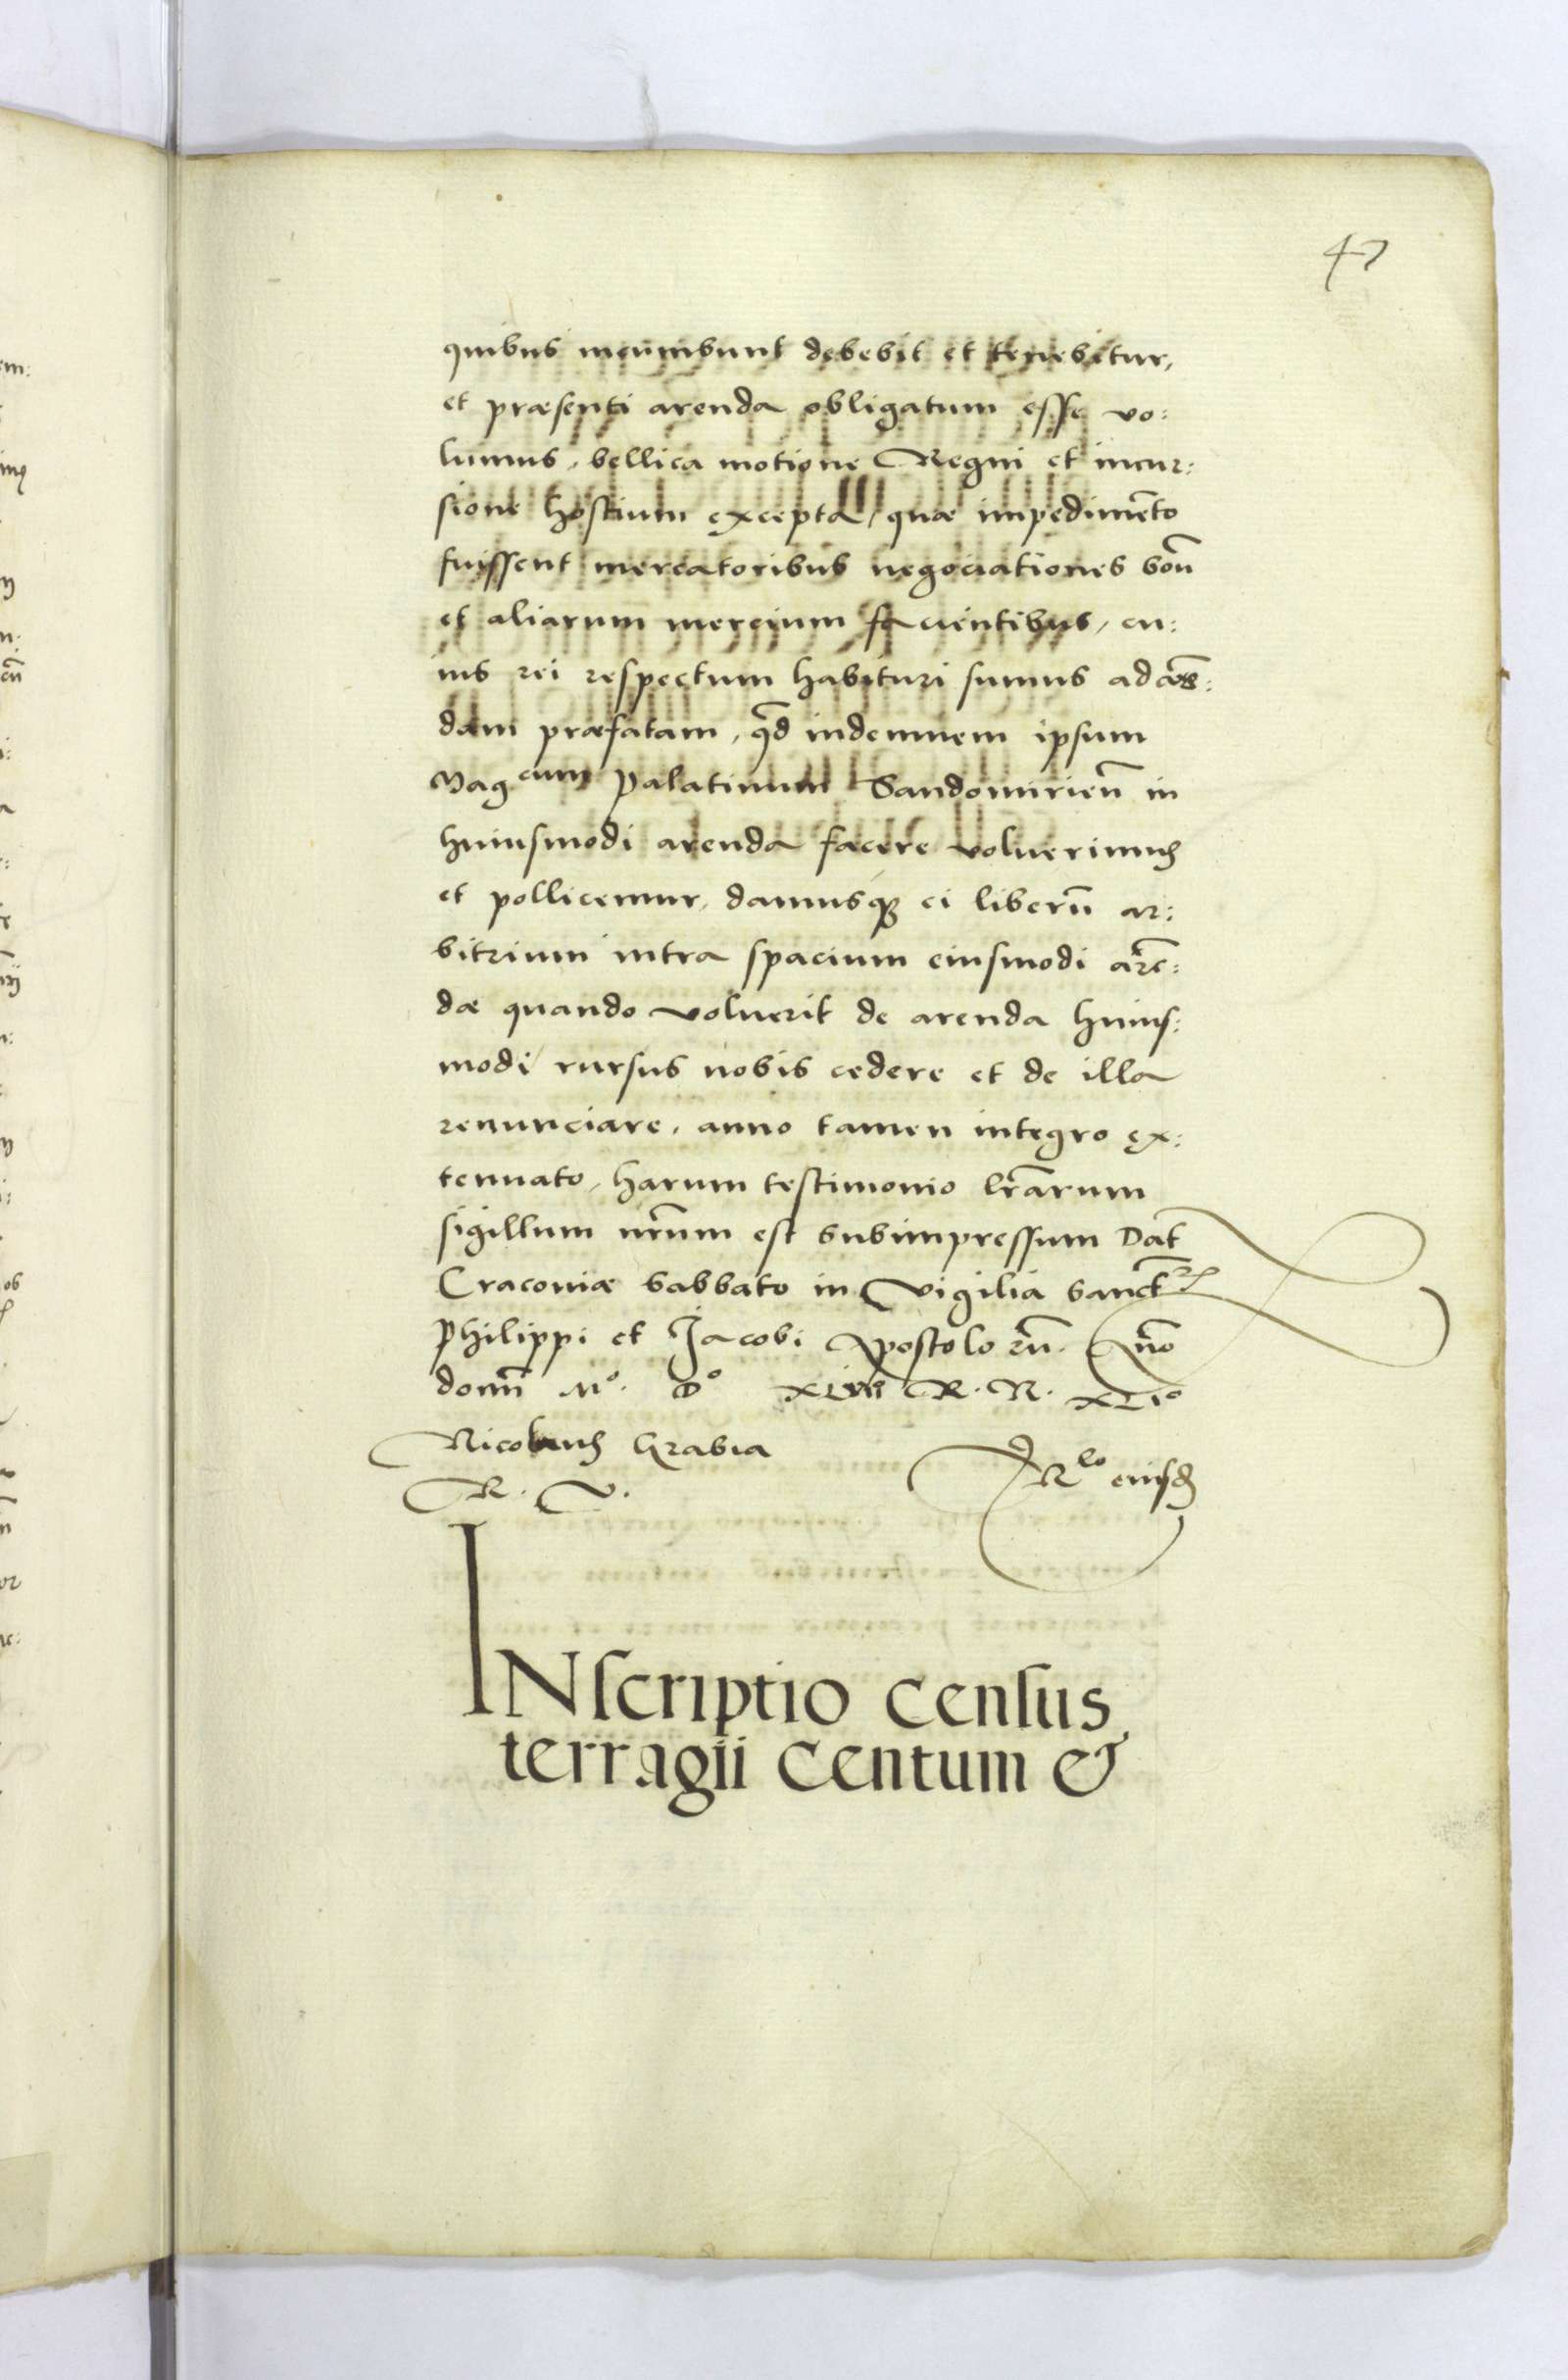 47
quibus incumbunt debebit et tenebitur,
et præsenti arenda obligatum esse vo:
lumus, bellica motione Regni et incur:
sione hostium excepta, quæ impedimẽto
fuissent mercatoribus negociationes boũ
et aliarum mercium facientibus, cu:
ius rei respectum habituri sumus ad
dam præfatam, qd̃ indemnem ipsum
Magcum Palatinum Sandomirieñ in
huiusmodi arenda facere voluerimus
et pollicemur, damusq̃ ei liberũ ar:
bitrium intra spacium eiusmodi arẽ:
dæ quando voluerit de arenda huius:
modi rursus nobis cedere et de illa
renunciare, anno tamen integro ex:
tenuato, harum testimonio lr̃arum
sigillum nr̃um est subimpressum Dat̃
Cracoviæ Sabbato in Vigilia Sanct
Philippi et Jacobi Apostolorũ. Ãno
domñ Mº. Dº R. R. XLIº
Nicolaus Grabia
R. V. Rlo eiusd̃
INscriptio census
terragii centum &